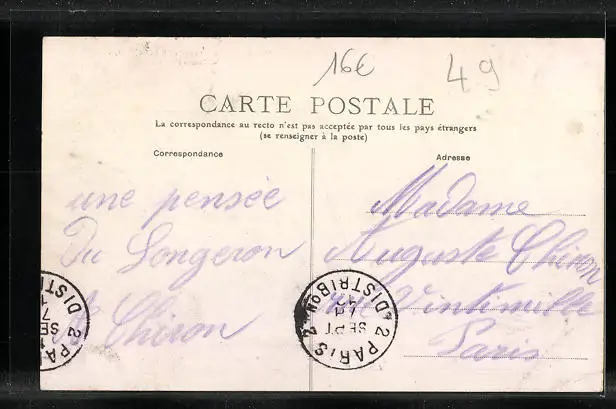 16€
49
CARTE POSTALE
La correspondance au recto n'est pas acceptée par tous les pays étrangers
(se renseigner à la poste)
Correspondance
Adresse
une pensée
Du Longeron
A Chiron
Madame
Auguste Chiron
rue Vintimille
Paris
PARIS 2
DISTRIBON
SEPT
PA
2
DISTR
SE
7